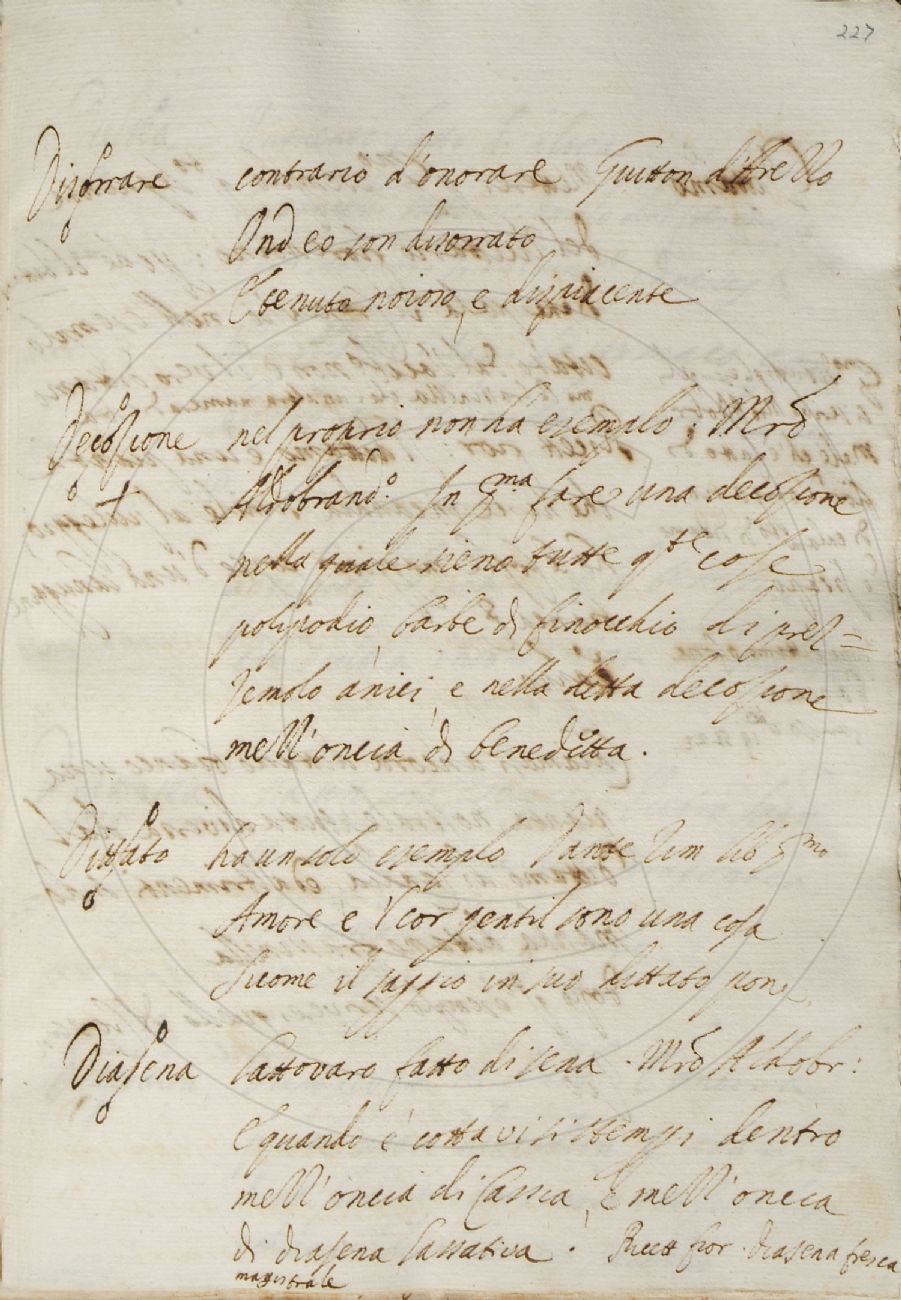 227
Disorrare contrario d'onorare Guitton d'Arezzo
Ond eo son disorrato
E tenuto noioso, e dispiacente
Decozione nel proprio non ha esempio: Mro
Aldobrando. In pma fare una decozione
nella quale sieno tutte qte cose
polipodio, barbe di finocchio di prez=
zemolo anici, e nella detta decozione
mezz'oncia di benedetta.
Dittato ha un solo esempio Dante Rim lib pmo
Amore e 'l cor gentil sono una cosa
Sicome il saggio in suo dittato pone
Diasena lattovaro fatto di sena. Mro Aldobr:
E quando è cotta vi si stempi dentro
mezz'oncia di Cassia, e mezz'oncia
di diasena lassativa. Ricett fior diasena fresca
magistrale